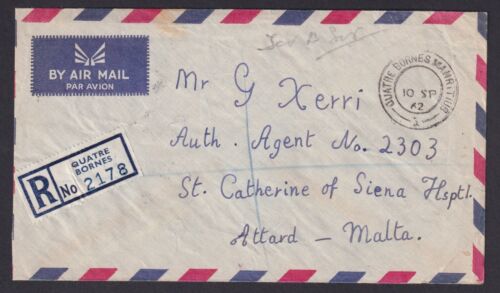 BY AIR MAIL
PAR AVION
QUATRE BORNES MAURITIUS
10 SP
62
Mr G Xerri
Auth. Agent No. 2303
St. Catherine of Siena Hsptl.
Attard - Malta.
R
QUATRE
BORNES
No 2178